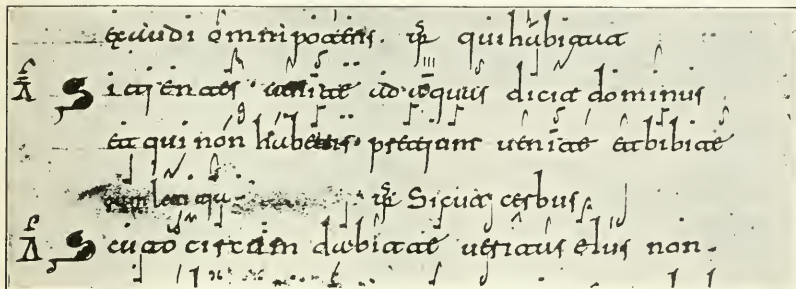 exaudi omnipotens. ps qui habitat
Sitientes uenite ad aquas dicit dominus
et qui non habetis pretium uenite et bibite
ps Sicut cerbus
Scuto circum dabit te ueritas eius non